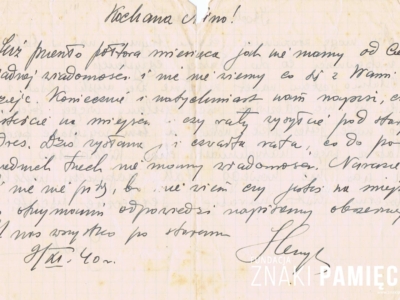 Kochana Mino!
Już przeszło półtora miesiąca jak nie mamy od Ci
żadnej wiadomości i nie nie wiemy co się z Wami
dzieje. Koniecznie i natychmiast nam napisz, c
jesteście na miejscu i czy raty wysyłać pod star
adres. Dziś wysłana już czwarta rata, co do po
przednich trzech nie mamy wiadomości. Narazie
nie piszę, bo nie wiem czy jesteś na miejs
otrzymaniu odpowiedzi napiszemy obszerny
U nas wszystko po staremu
9/XI. 40 r. Henryk
FUNDACJA
ZNAKI PAMIĘC